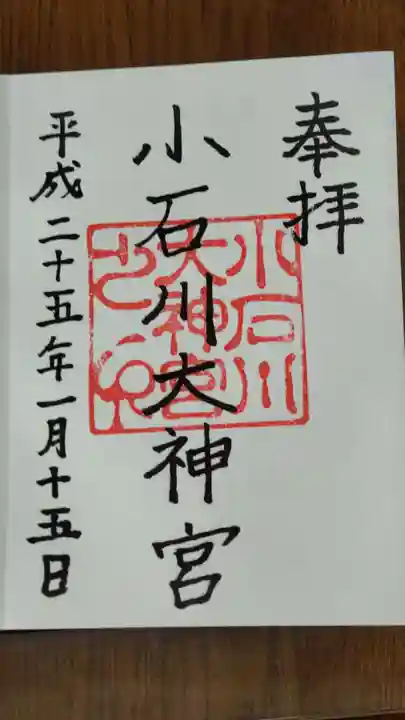 奉拝
小石川大神宮
小石川
大神宮
之印
平成二十五年一月十五日